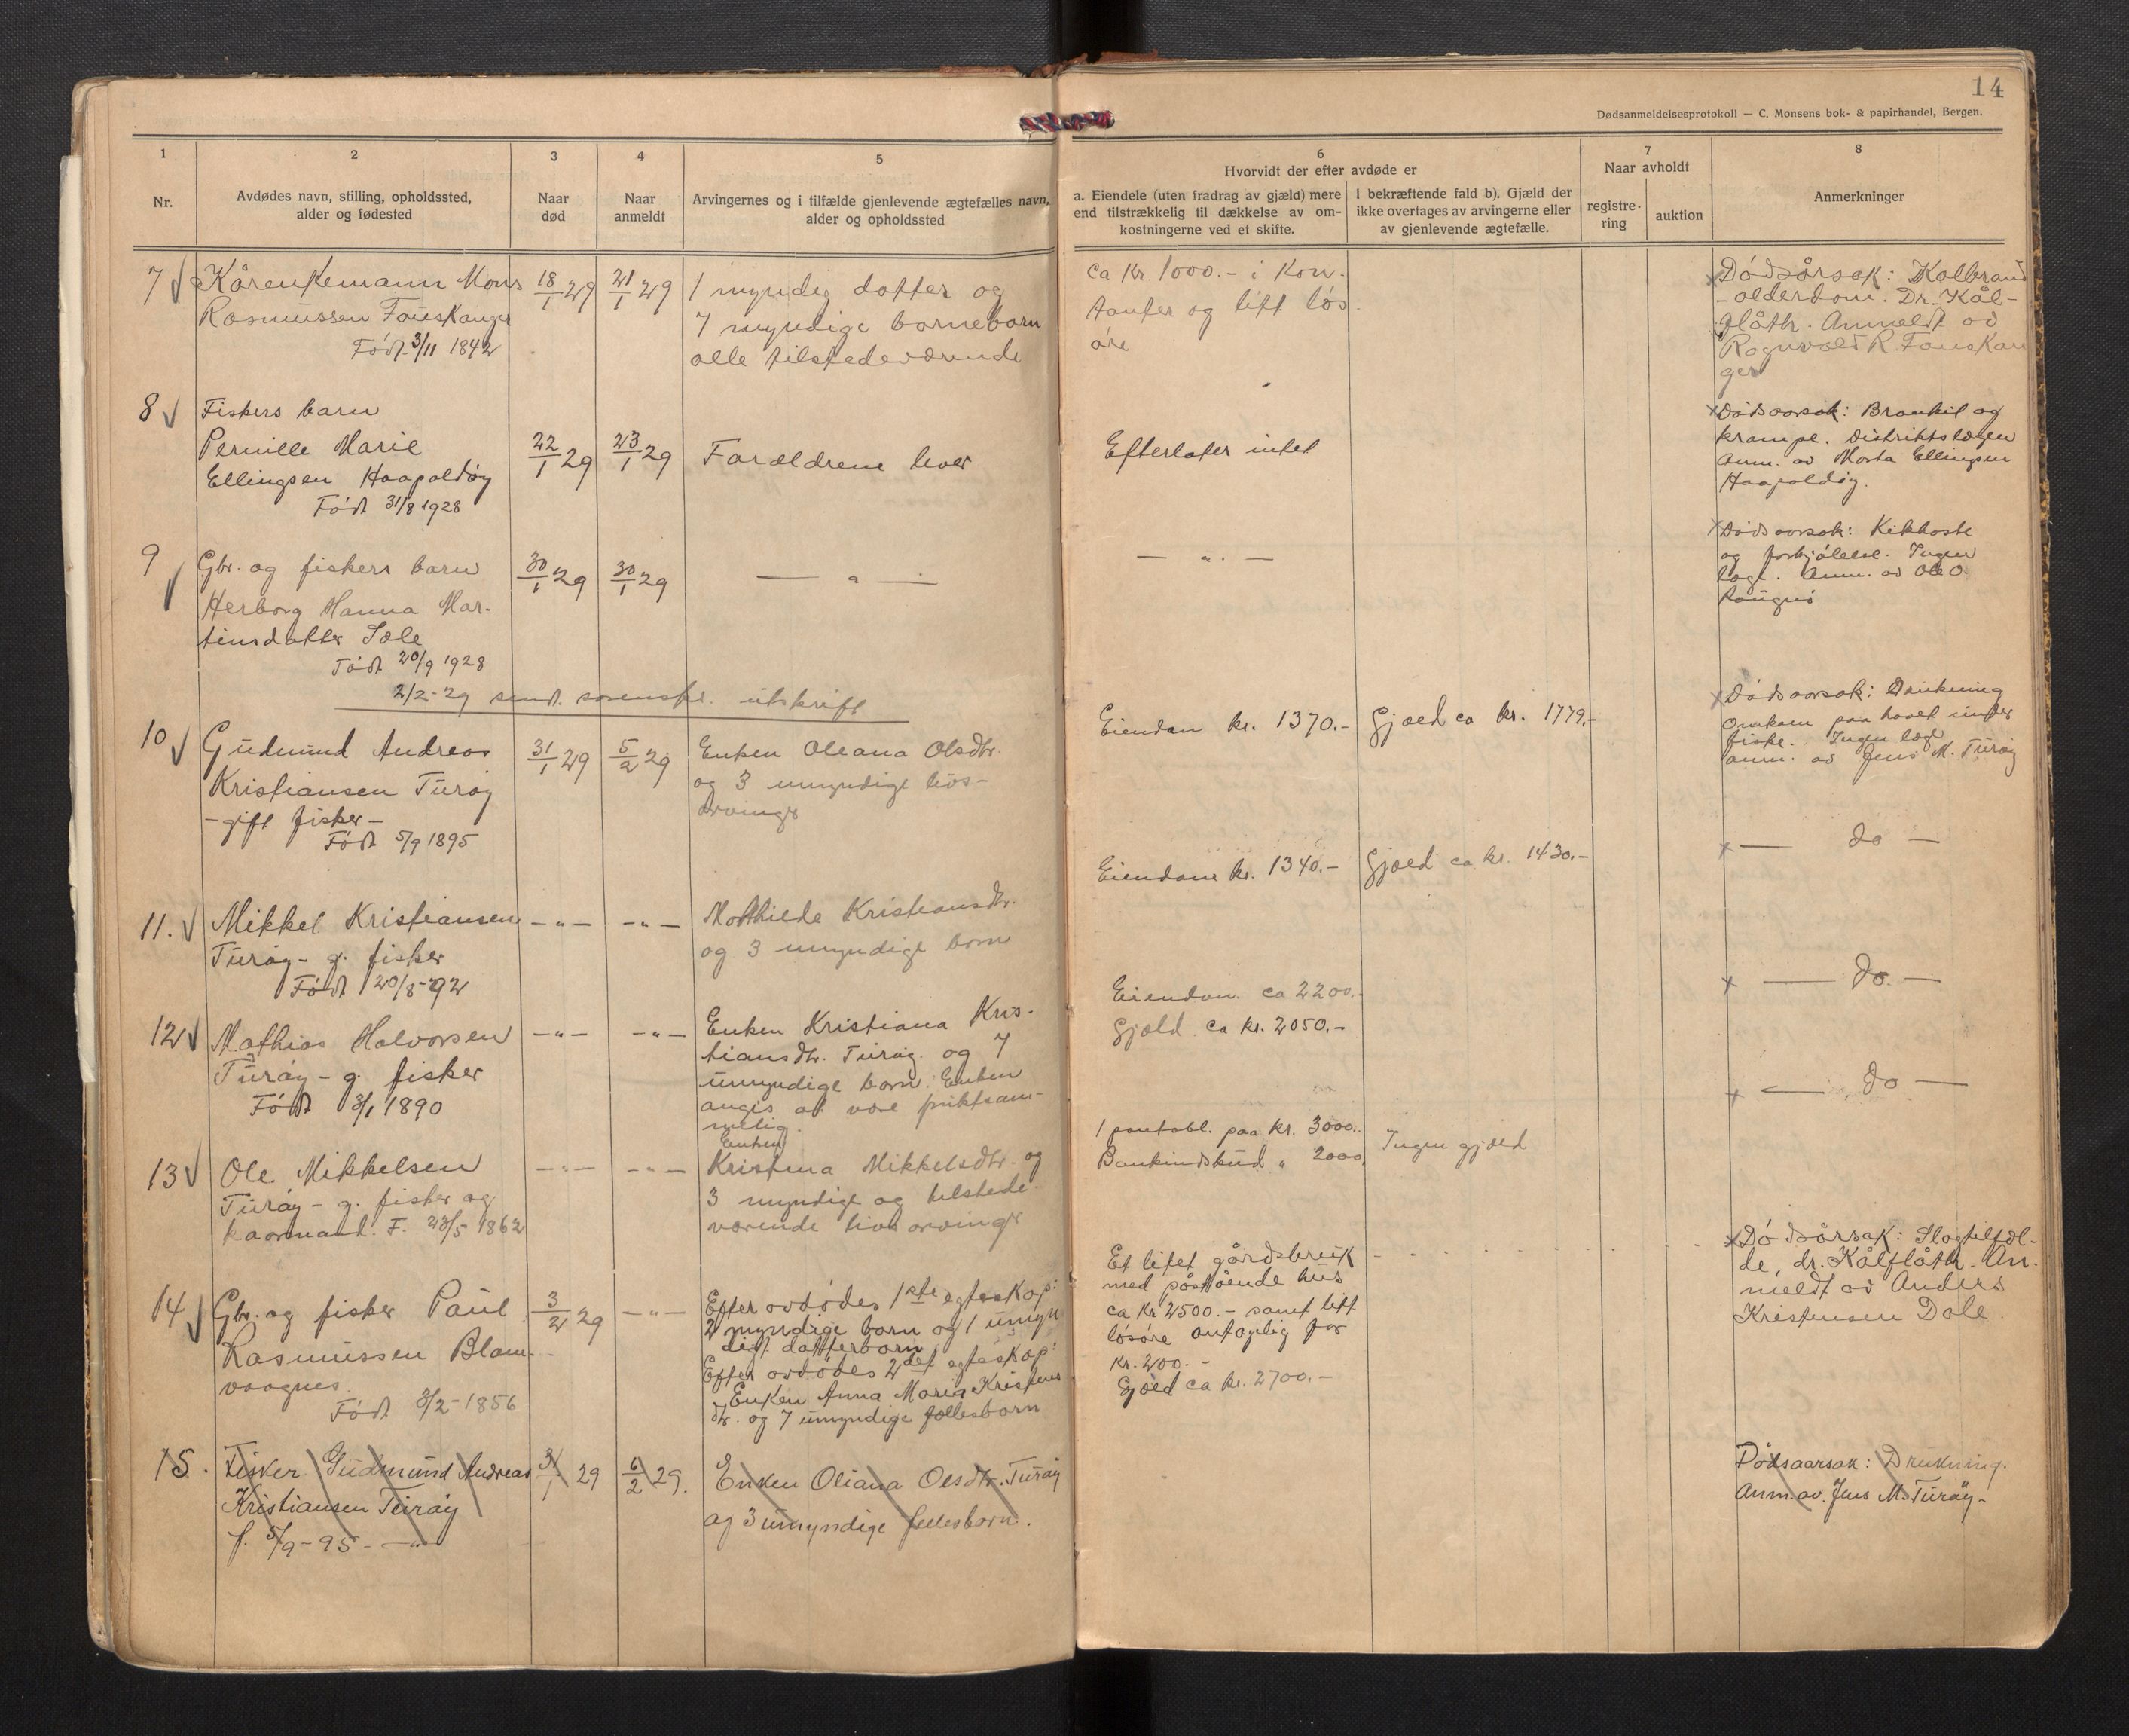 14
Dødsanmeldelsesprotokoll — C. Monsens bok- & papirhandel, Bergen.
1
Nr.
2
Avdødes navn, stilling, opholdssted,
alder og fødested
3
Naar
død
4
Naar
anmeldt
5
Arvingernes og i tilfælde gjenlevende ægtefælles navn,
alder og opholdssted
6
Hvorvidt der efter avdøde er
a. Eiendele (uten fradrag av gjæld) mere
end tilstrækkelig til dækkelse av om-
kostningerne ved et skifte.
I bekræftende fald b). Gjæld der
ikke overtages av arvingerne eller
av gjenlevende ægtefælle.
7
Naar avholdt
registre-
ring
auktion
8
Anmerkninger
7
Kårenkemann Mons
Rasmussen Fauskanger
Født 3/11 1842
18/1 29
21/1 29
1 myndig datter og
7 myndige barnebarn
alle tilstedeværende
Ca Kr. 1000.- i kon-
tanter og litt løs-
øre
Dødsårsak: Kolbrand
- alderdom. Dr. Kål-
flåth. Anmeldt av
Ragnvald R. Fauskan
ger
8
Fiskers barn
Pernille Marie
Ellingsen Haapoldøy
Født 31/8 1928
22/1 29
23/1 29
Forældrene lever
Efterlater intet
Dødsaarsak: Bronkit og
krampe. Distriktslægen
Anm. av Marta Ellingsen
Haapoldøy.
9
Gbr. og fiskers barn
Herborg Hanna Mar-
tinsdatter Sæle
Født 20/9 1928
30/1 29
30/1 29
— " —
— " —
Dødsaarsak: Kikhoste
og forkjølelse. Ingen
læge. Anm. av Ole O.
2/2-29 sendt sorenskr. utskrift
10
Gudmund Andreas
Kristiansen Turøy
- gift fisker -
Født 5/9 1895
31/1 29
5/2 29
Enken Oleana Olsdtr.
og 3 umyndige livs-
arvinger
Eiendom kr. 1370.-
Gjæld ca kr. 1779.-
Dødsaarsak: Drukning
Omkom paa havet under
fiske. Ingen læge
anm. av Jens M. Turøy
11.
Mikkel Kristiansen
Turøy - g. fisker
Født 20/8-92
- " -
- " -
Mathilde Kristiansdtr.
og 3 umyndige born
Eiendom kr. 1340.-
Gjæld ca kr. 1430.-
— do —
12
Mathias Halvorsen
Turøy - g. fisker
Født 3/1 1890
- " -
- " -
Enken Kristiana Kris-
tiansdtr. Turøy og 7
umyndige born. Enken
angis at være fruktsom-
melig.
Eiendom ca 2200.-
Gjæld ca kr. 2050.-
— do. —
13
Ole Mikkelsen
Turøy - g. fisker og
F. 23/5 1862
- " -
- " -
Enken
Kristina Mikkelsdtr. og
3 myndige og tilstede-
værende livsarvinger
1 pantobl. paa kr. 3000.-
Bankindskud " 2000.
Ingen gjæld
— do —
14
Gbr. og fisker Paul
Rasmussen Blom-
vaagnes.
Født 3/2-1856
3/2 29
- " -
Efter avdødes 1ste egteskap:
2 myndige born og 1 umyn
digt datterborn
Efter avdødes 2det egteskap:
Enken Anna Maria Kristens
dtr. og 7 umyndige fællesborn
Et litet gårdsbruk
med påstående hus
ca Kr 2500.- samt litt
løsøre antagelig for
Kr. 200.-
Gjæld ca kr. 2700.-
Dødsårsak: Slagtilfæl-
de, dr. Kålflåth. An-
meldt av Anders
Kristensen Dale
15.
Fisker Gudmund Andreas
Kristiansen Turøy
f. 5/9-95-
31/1 29
6/2 29.
Enken Oliana Olsdtr. Turøy
og 3 umyndige fellesborn.
Dødsaarsak: Drukning.
Anm. av. Jens M. Turøy-